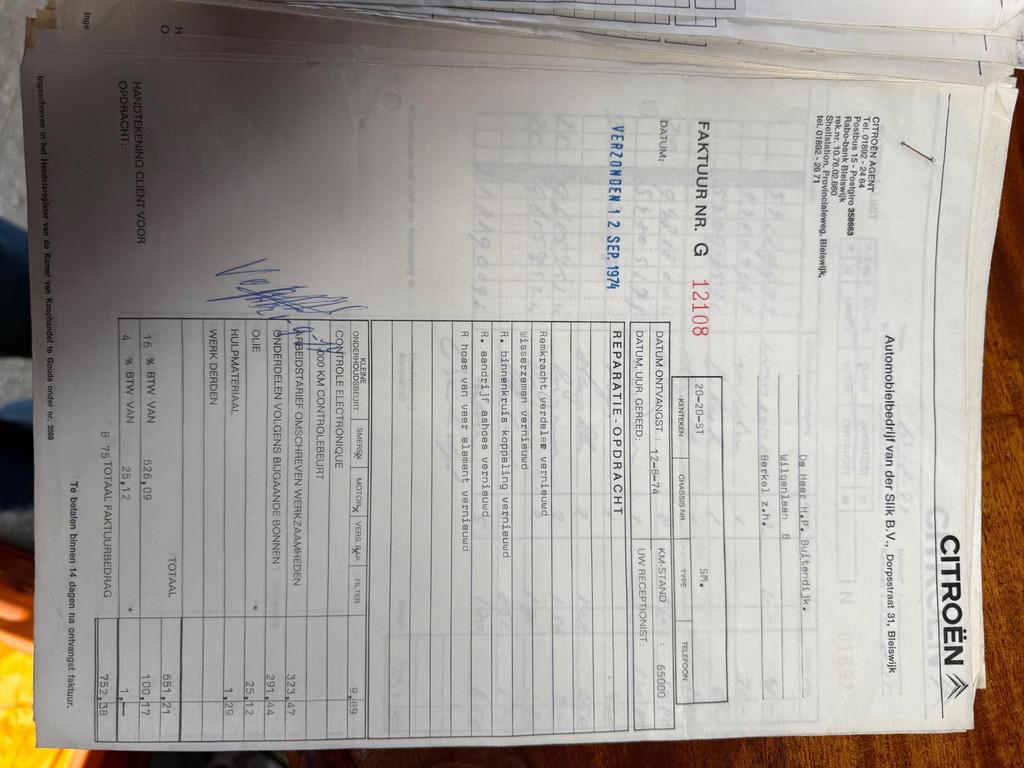 CITROËN
Automobielbedrijf van der Slik B.V., Dorpsstraat 31, Bleiswijk
CITROËN AGENT
Tel. 01892 - 24 64
Postbus 15 - Postgiro 358663
Rabo-bank Bleiswijk
rek.nr. 10.76.02.660
Shellstation, Provincialeweg, Bleiswijk,
tel. 01892 - 26 71
De Heer H.P. Buitendijk.
Wilgenlaan 8
Berkel z.h.
FAKTUUR NR. G 12108
20-20-ST SM.
KENTEKEN CHASSIS NR. TYPE TELEFOON
DATUM:
DATUM ONTVANGST : 12-8-74 KM-STAND : 65000
DATUM, UUR, GEREED: UW RECEPTIONIST:
VERZONDEN 12 SEP. 1974
REPARATIE - OPDRACHT
Remkracht verdeler vernieuwd
Wisserzamen vernieuwd
R. binnenkruis koppeling vernieuwd
R. aandrijf ashoes vernieuwd
R hoes van veer element vernieuwd
KLEINE ONDERHOUDSBEURT SMEREN MOTOR VERS. BAK FILTER 9,89
CONTROLE ELECTRONIQUE
1000 KM CONTROLEBEURT
ARBEIDSTARIEF OMSCHREVEN WERKZAAMHEDEN 323,47
ONDERDELEN VOLGENS BIJGAANDE BONNEN 291,44
OLIE * 25,12
HULPMATERIAAL 1,29
WERK DERDEN
TOTAAL 651,21
16 % BTW VAN 626,09 100,17
4 % BTW VAN 25,12 * 1,--
B 75 TOTAAL FAKTUURBEDRAG 752,38
HANDTEKENING CLIËNT VOOR
OPDRACHT:
Te betalen binnen 14 dagen na ontvangst faktuur.
Ingeschreven in het Handelsregister van de Kamer van Koophandel te Gouda onder nr. 3669